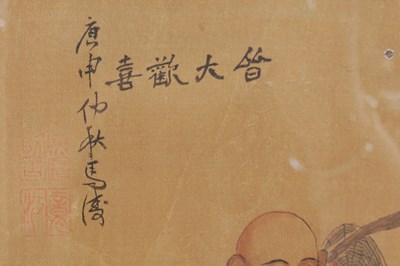 皆大歡喜
庚申仲秋馬濤